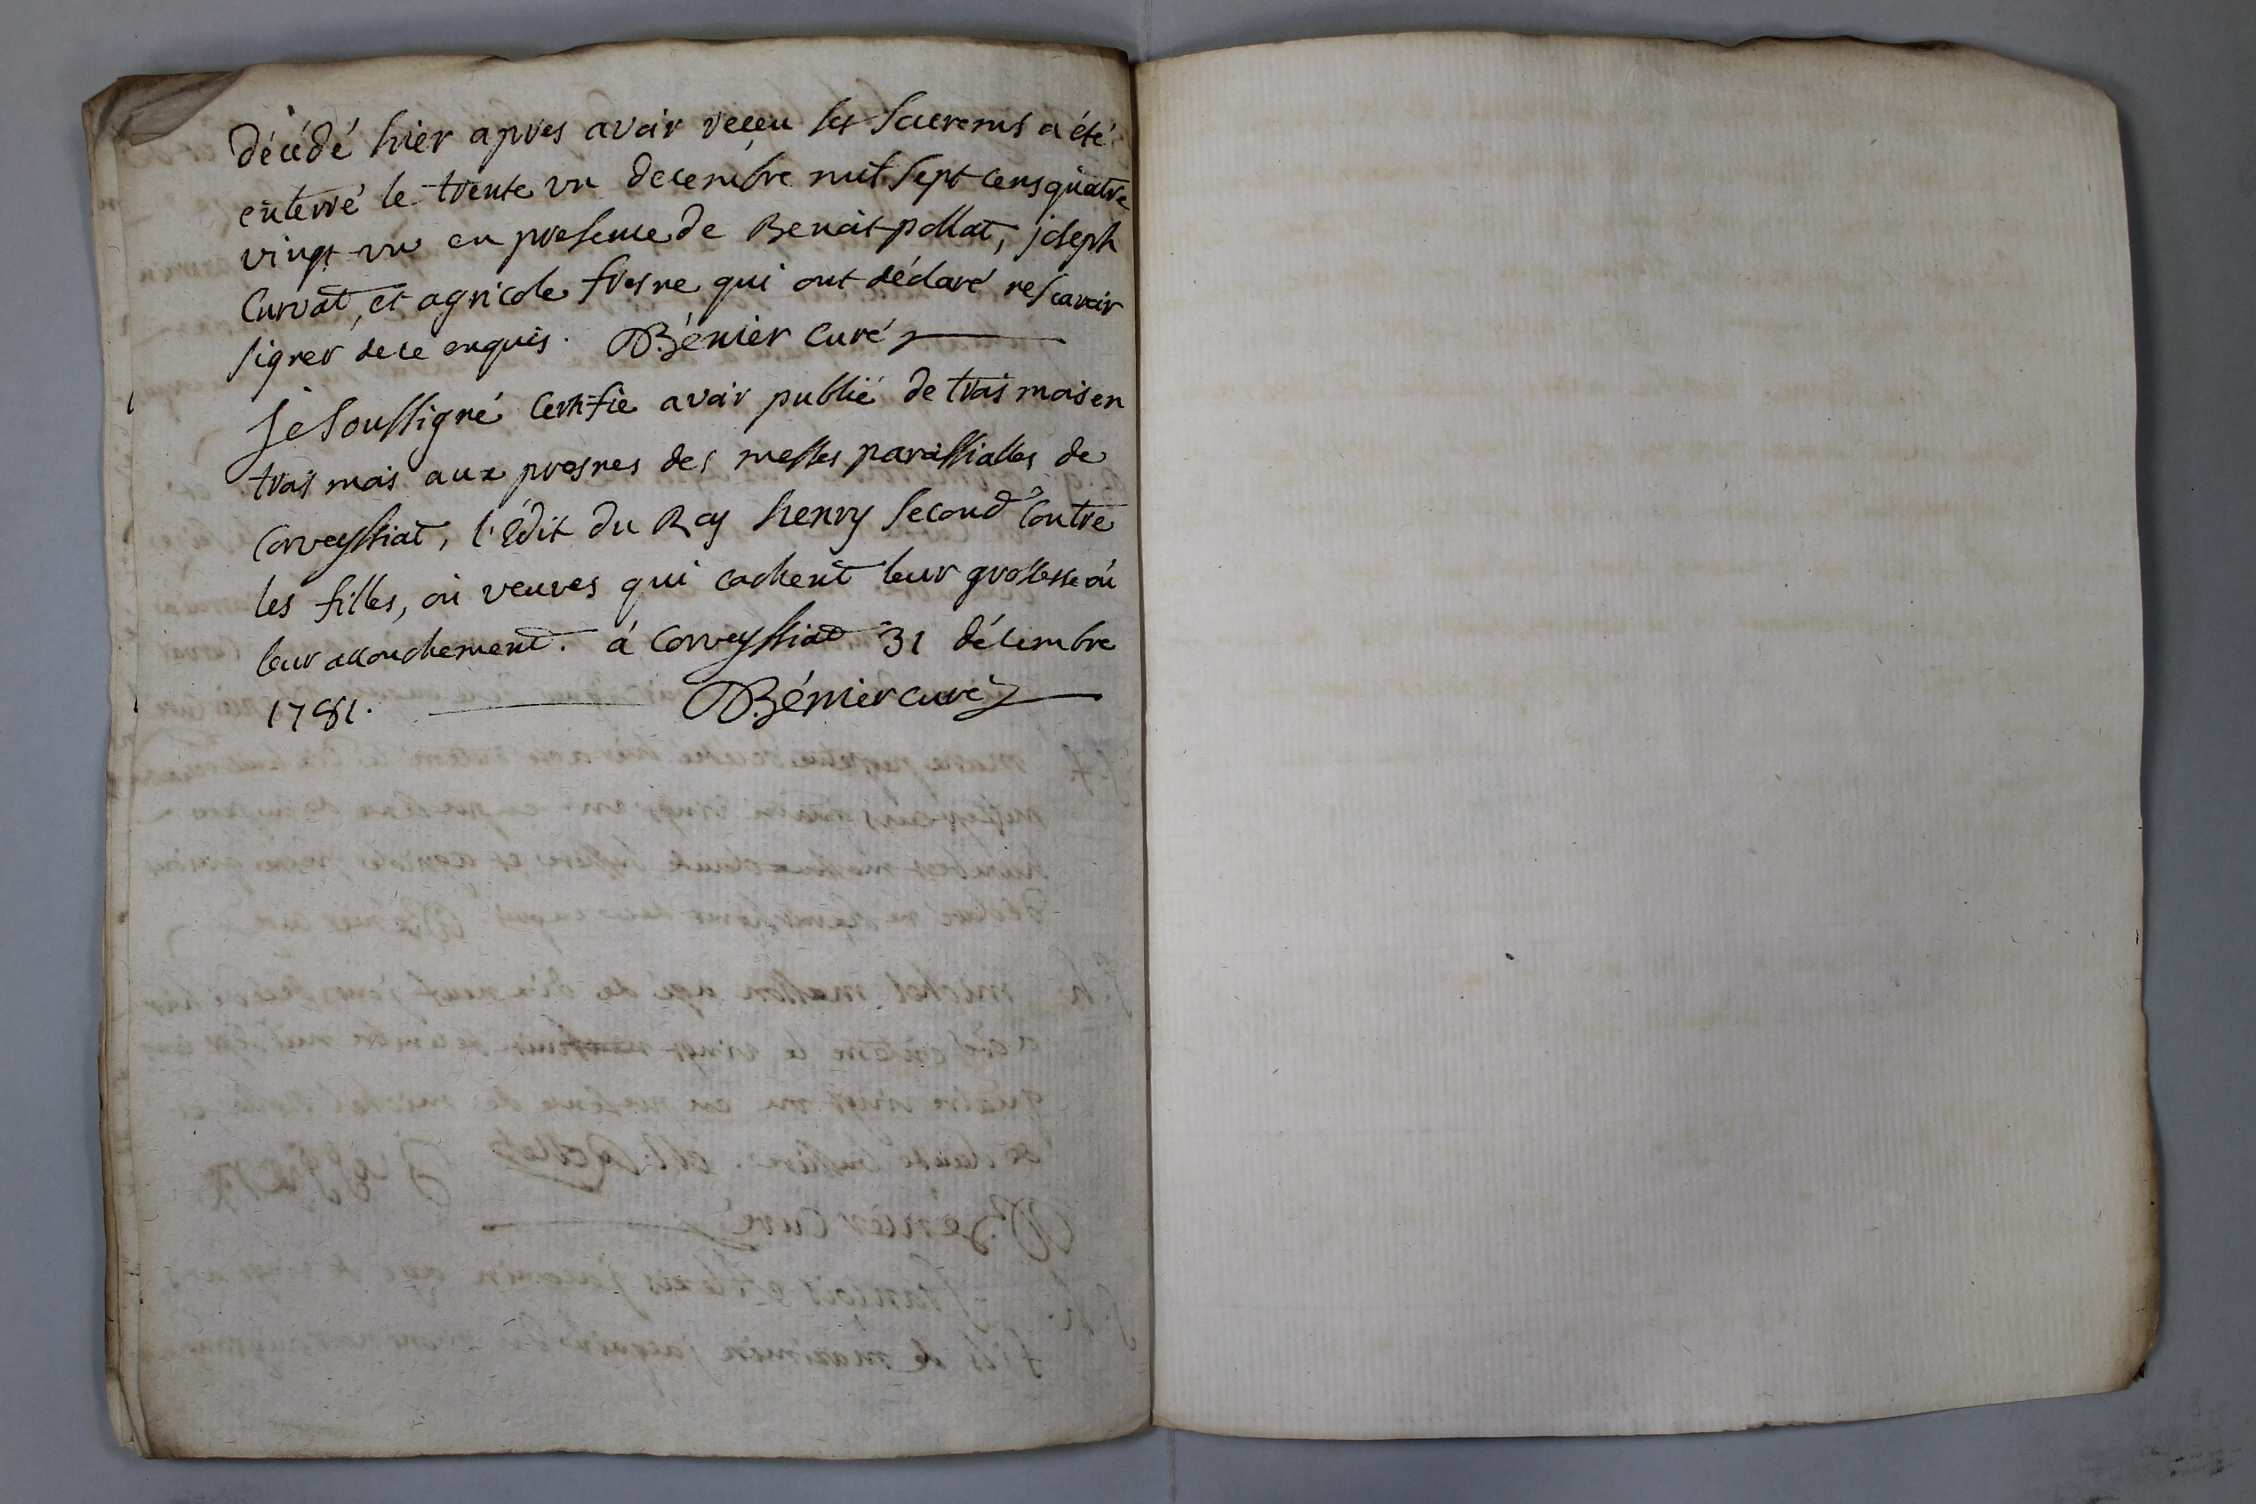 décédé hier apres avoir reçeu ses Sacremens a été
enterré le trente un decembre mil sept cens quatre
vingt un en presence de Benoit pollat, joseph
Curvat, et agricole fresne qui ont déclaré ne scavoir
signer de ce enquis. Bénier Curé
Je Soussigné Certifie avoir publié de trois mois en
trois mois aux prosnes des messes paroissialles de
Corveyssiat, l'Edit du Roy henry Second Contre
les filles, où veuves qui cachent leur grossesse où
leur accouchement. à Corveyssiat 31 décembre
1781. Bénier curé